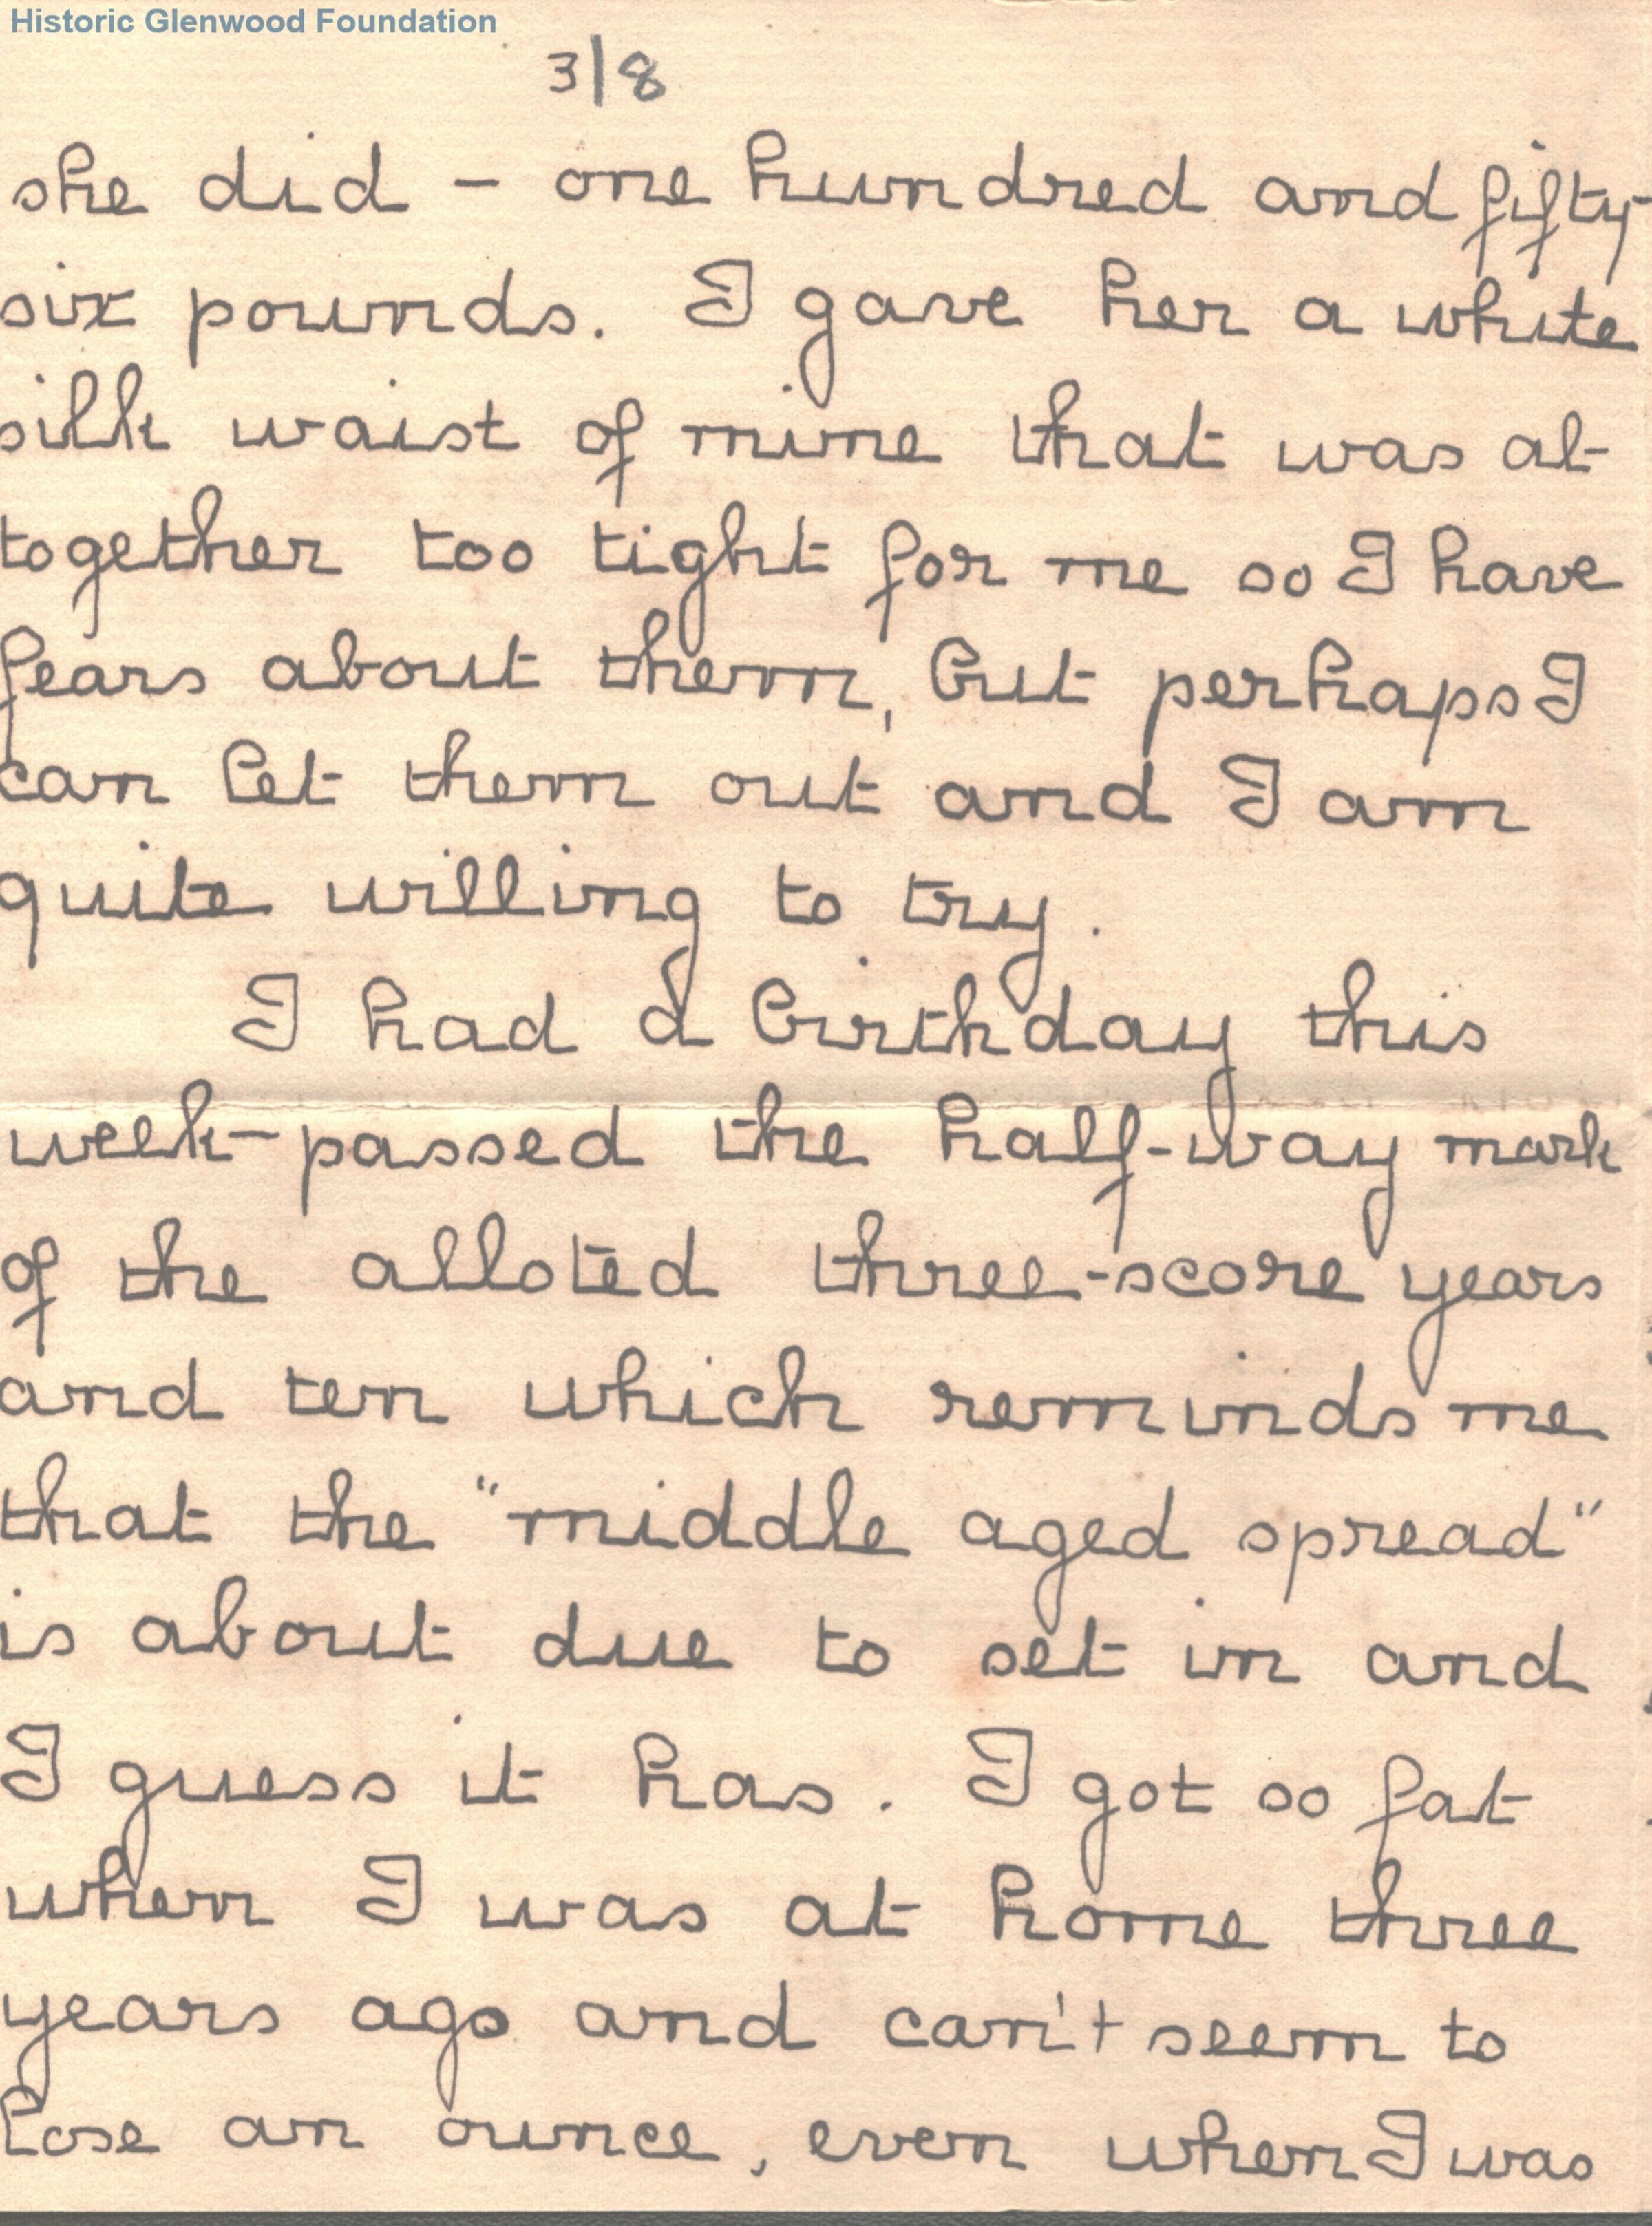 Historic Glenwood Foundation
3/8
she did - one hundred and fifty-
six pounds. I gave her a white
silk waist of mine that was al-
together too tight for me so I have
fears about them, but perhaps I
can let them out and I am
quite willing to try.
I had a birthday this
week-passed the half-way mark
of the alloted three-score years
and ten which reminds me
that the "middle aged spread"
is about due to set in and
I guess it has. I got so fat
when I was at home three
years ago and can't seem to
lose an ounce, even when I was